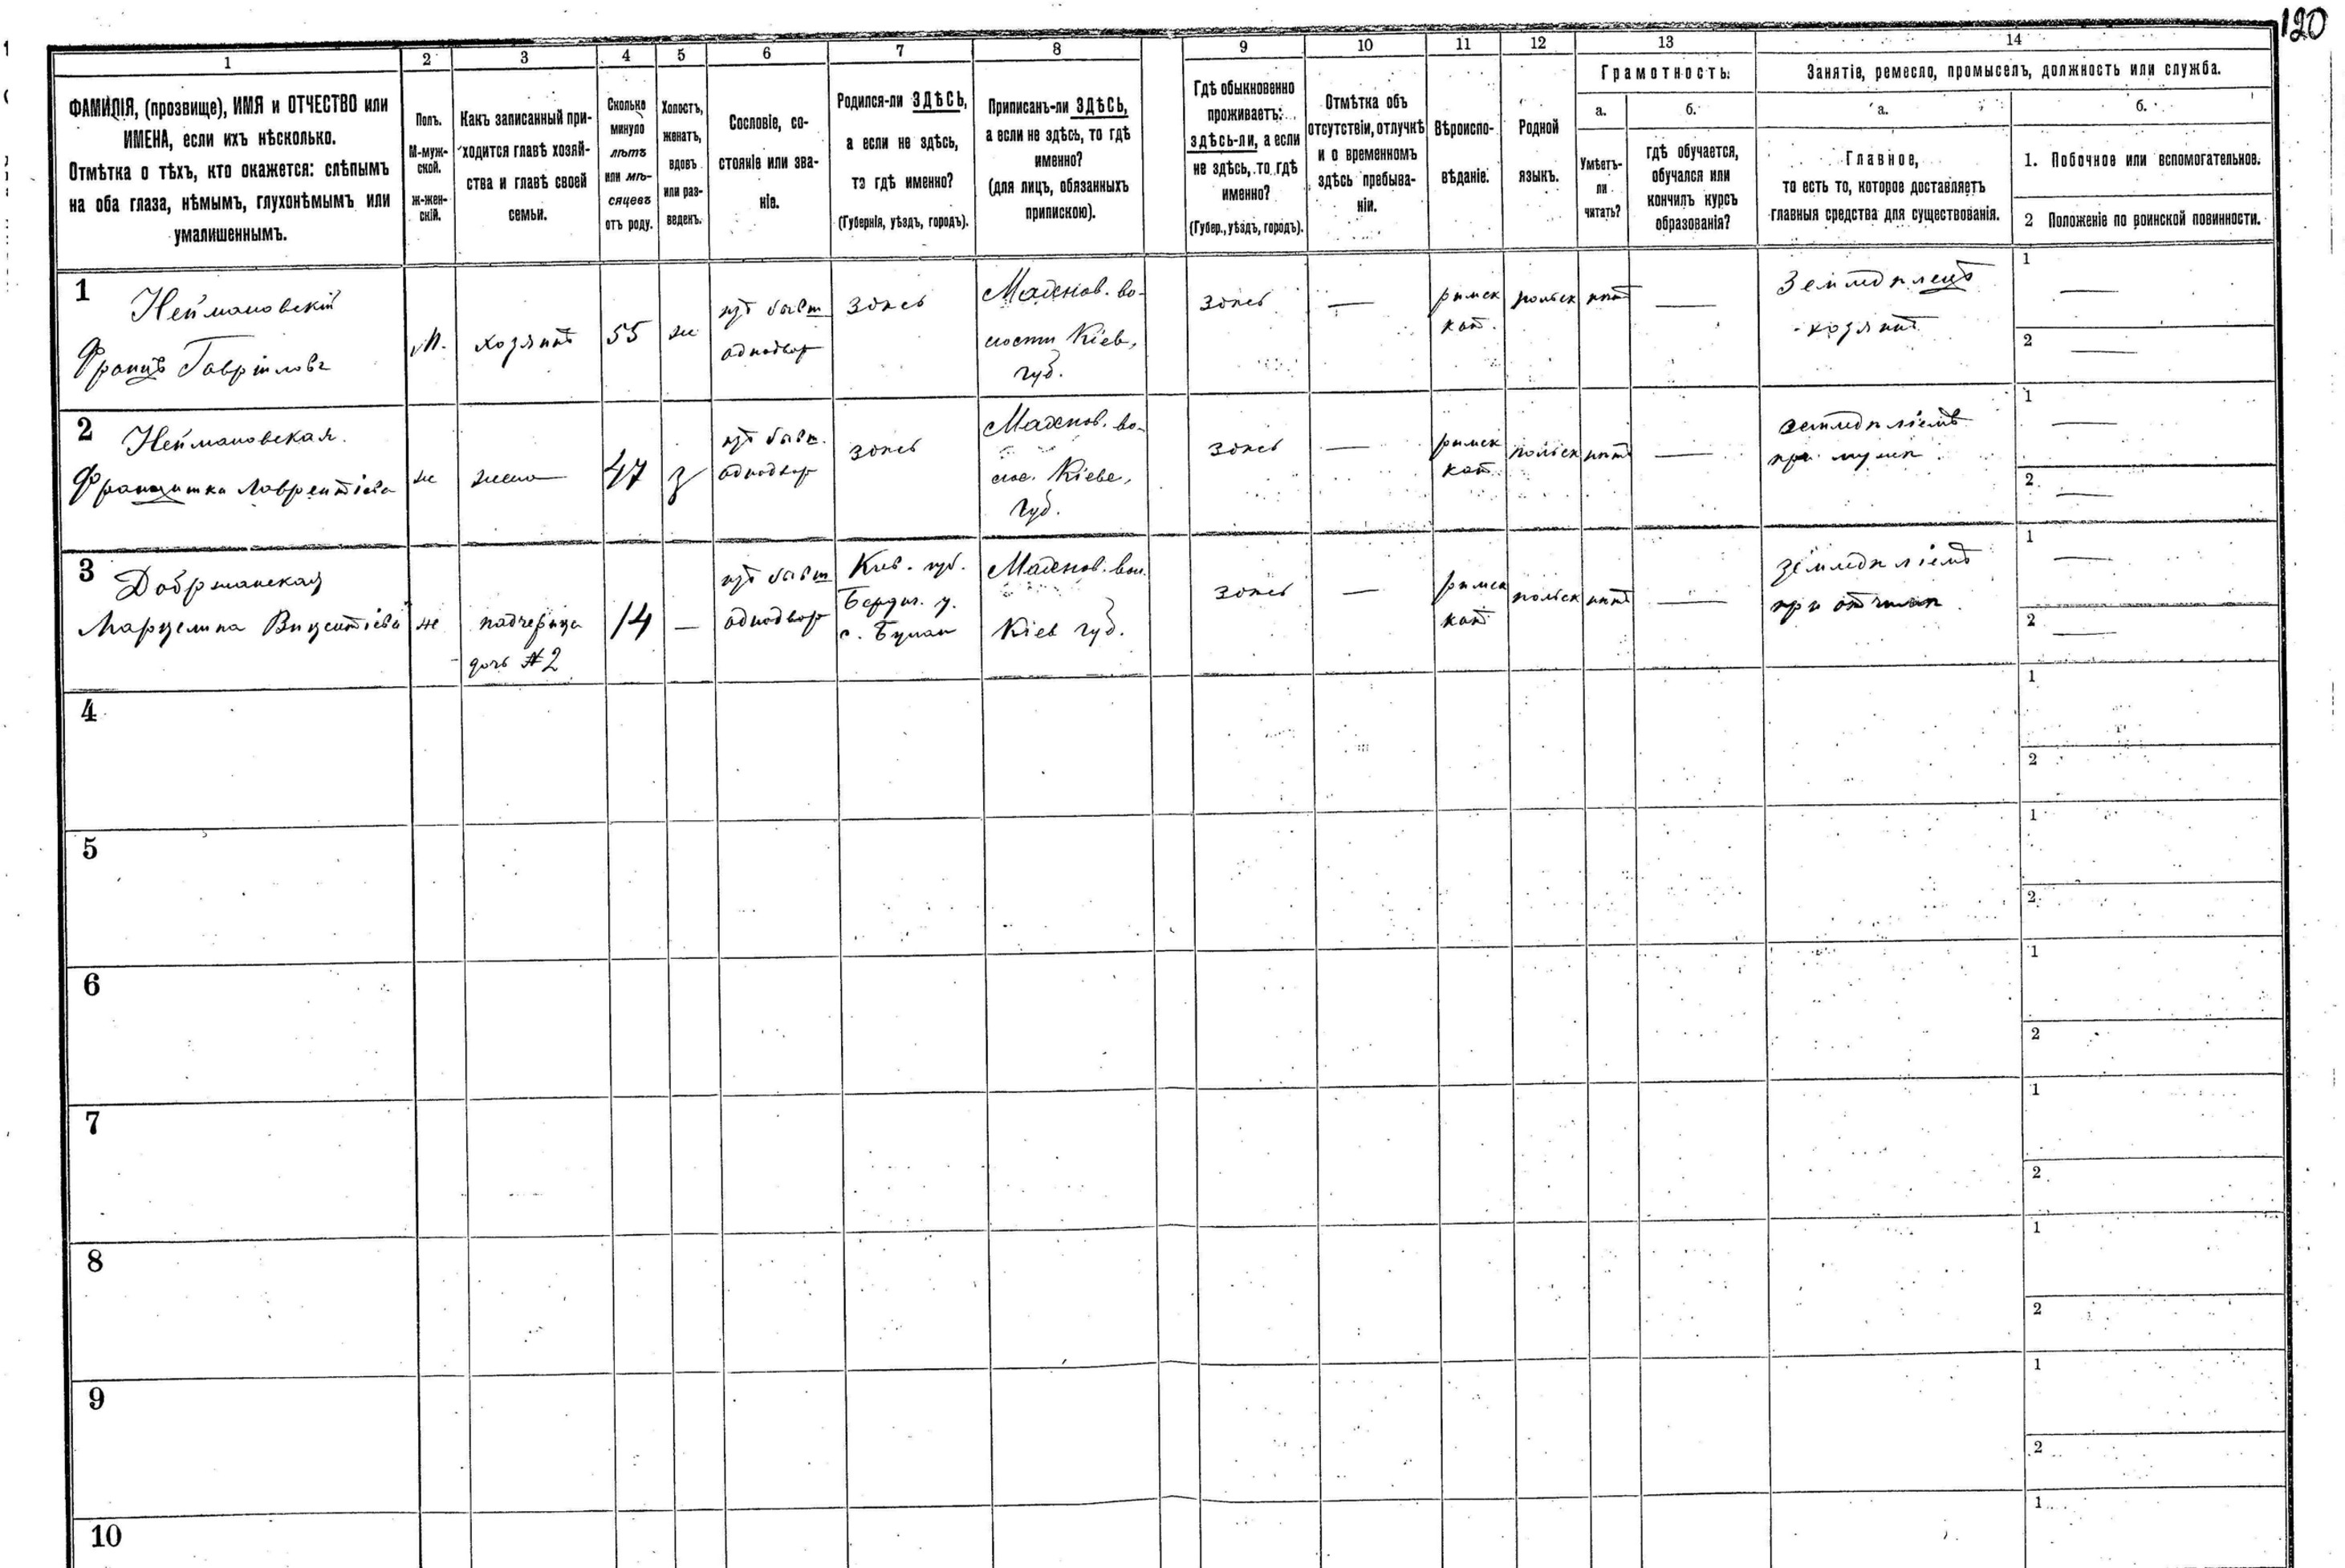 120
1
2
3
4
5
6
7
8
9
10
11
12
13
14
ФАМИЛІЯ, (прозвище), ИМЯ и ОТЧЕСТВО или
ИМЕНА, если ихъ нѣсколько.
Отмѣтка о тѣхъ, кто окажется: слѣпымъ
на оба глаза, нѣмымъ, глухонѣмымъ или
умалишеннымъ.
Полъ.
М-муж-
ской.
ж-жен-
скій.
Какъ записанный при-
ходится главѣ хозяй-
ства и главѣ своей
семьи.
Сколько
минуло
лѣтъ
или мѣ-
сяцевъ
отъ роду.
Холостъ,
женатъ,
вдовъ
или раз-
веденъ.
Сословіе, со-
стояніе или зва-
ніе.
Родился-ли ЗДѢСЬ,
а если не здѣсь,
то гдѣ именно?
(Губернія, уѣздъ, городъ).
Приписанъ-ли ЗДѢСЬ,
а если не здѣсь, то гдѣ
именно?
(для лицъ, обязанныхъ
припискою).
Гдѣ обыкновенно
проживаетъ:
здѣсь-ли, а если
не здѣсь, то гдѣ
именно?
(Губер., уѣздъ, городъ).
Отмѣтка объ
отсутствіи, отлучкѣ
и о временномъ
здѣсь пребыва-
ніи.
Вѣроиспо-
вѣданіе.
Родной
языкъ.
Грамотность.
а.
Умѣетъ-
ли
читать?
б.
гдѣ обучается,
обучался или
кончилъ курсъ
образованія?
Занятіе, ремесло, промыселъ, должность или служба.
а.
Главное,
то есть то, которое доставляетъ
главныя средства для существованія.
б.
1. Побочное или вспомогательное.
2 Положеніе по воинской повинности.
1
Неймановскій
Францъ Гаврiиловъ
М.
хозяинъ
55
ж
изъ бывш
однодвор
здѣсь
Махнов. во-
лости Кіев.
губ.
здѣсь
—
римск
кат.
польск
нѣтъ
—
Земледѣлецъ
- хозяинъ
1
—
2
—
2
Неймановская.
Францишка Лаврентіева
ж
жена
47
з
изъ бывш.
однодвор
здѣсь
Махнов. во-
лос. Кіеве.
губ.
здѣсь
—
римск
кат.
польск
нѣтъ
—
земледѣліемъ
при мужѣ
1
—
2
—
3
Добржанская
Марцелина Вицентіева
ж
падчерица
дочь #2
14
—
изъ бывш
однодвор
Киев. губ.
Бердич. у.
Махнов. вол.
Кіев губ.
здѣсь
—
римск
кат
польск
нѣтъ
—
земледѣліемъ
при отчимѣ
1
—
2
—
4
1
2
5
1
2
6
1
2
7
1
2
8
1
2
9
1
2
10
1